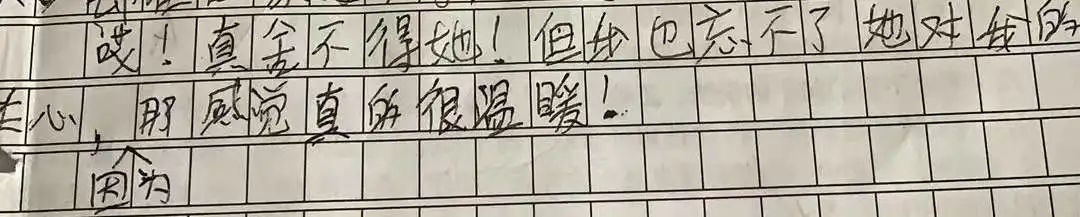 哎！真舍不得她！但我也忘不了她对我的
关心，那感觉真的很温暖！
因为